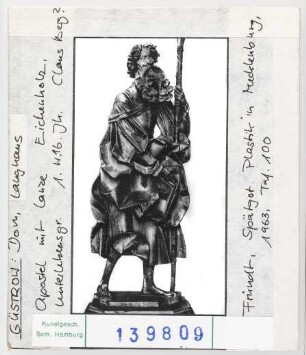 GÜSTROW: Dom, Langhaus
Apostel mit Lanze Eichenholz,
unterlebensgr. 1. H 16. Jh. Claus Berg?
Fründt, Spätgot. Plastik in Mecklenburg,
1963, Taf. 100
Kunstgesch.
Sem. Hamburg
139809